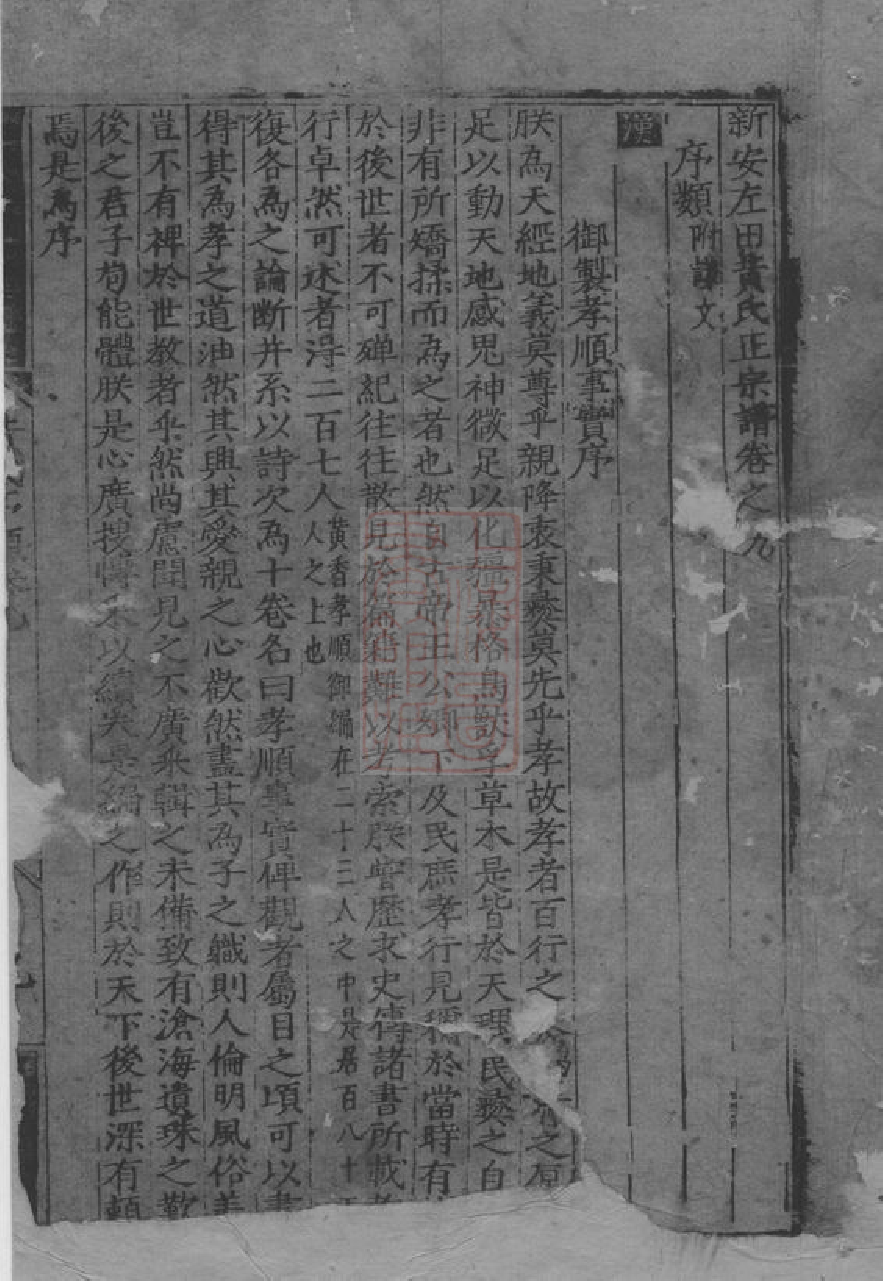 新安左田黃氏正宗譜卷之九
序類附誥文
漢
御製孝順事實序
朕為天經地義莫尊乎親降衷秉彝莫先乎孝故孝者百行之
足以動天地感鬼神微足以化彊暴格鳥獸孚草木是皆於天理民彝之自
非有所矯揉而為之者也然自古帝王公卿下及民庶孝行見稱於當時有
於後世者不可殫紀往往散見於篇籍難以考索朕嘗歷求史傳諸書所載
行卓然可述者得二百七人黃香孝順御編在二十三人之中是居百八十
人之上也
復各為之論斷并系以詩次為十卷名曰孝順事實俾觀者屬目之頃可以
得其為孝之道油然其興其愛親之心歡然盡其為子之職則人倫明風俗美
豈不有裨於世教者乎然尚慮聞見之不廣采輯之未備致有滄海遺珠之歎
後之君子茍能體朕是心廣搜愽采以續是編之作則於天下後世深有賴
焉是為序